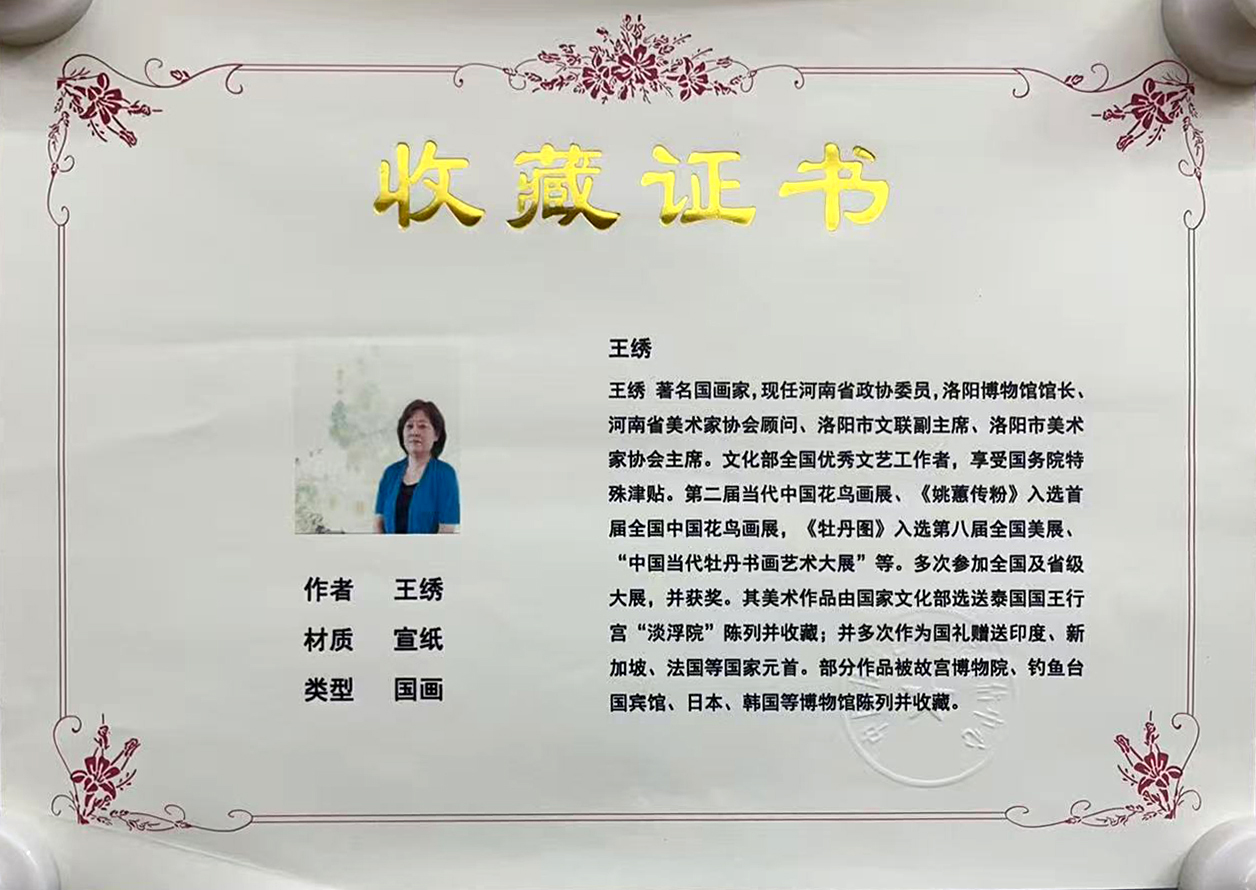 收藏证书
王绣
王绣 著名国画家,现任河南省政协委员,洛阳博物馆馆长、
河南省美术家协会顾问、洛阳市文联副主席、洛阳市美术
家协会主席。文化部全国优秀文艺工作者，享受国务院特
殊津贴。第二届当代中国花鸟画展、《姚蕙传粉》入选首
届全国中国花鸟画展，《牡丹图》入选第八届全国美展、
“中国当代牡丹书画艺术大展”等。多次参加全国及省级
大展，并获奖。其美术作品由国家文化部选送泰国国王行
宫“淡浮院”陈列并收藏；并多次作为国礼赠送印度、新
加坡、法国等国家元首。部分作品被故宫博物院、钓鱼台
国宾馆、日本、韩国等博物馆陈列并收藏。
作者 王绣
材质 宣纸
类型 国画